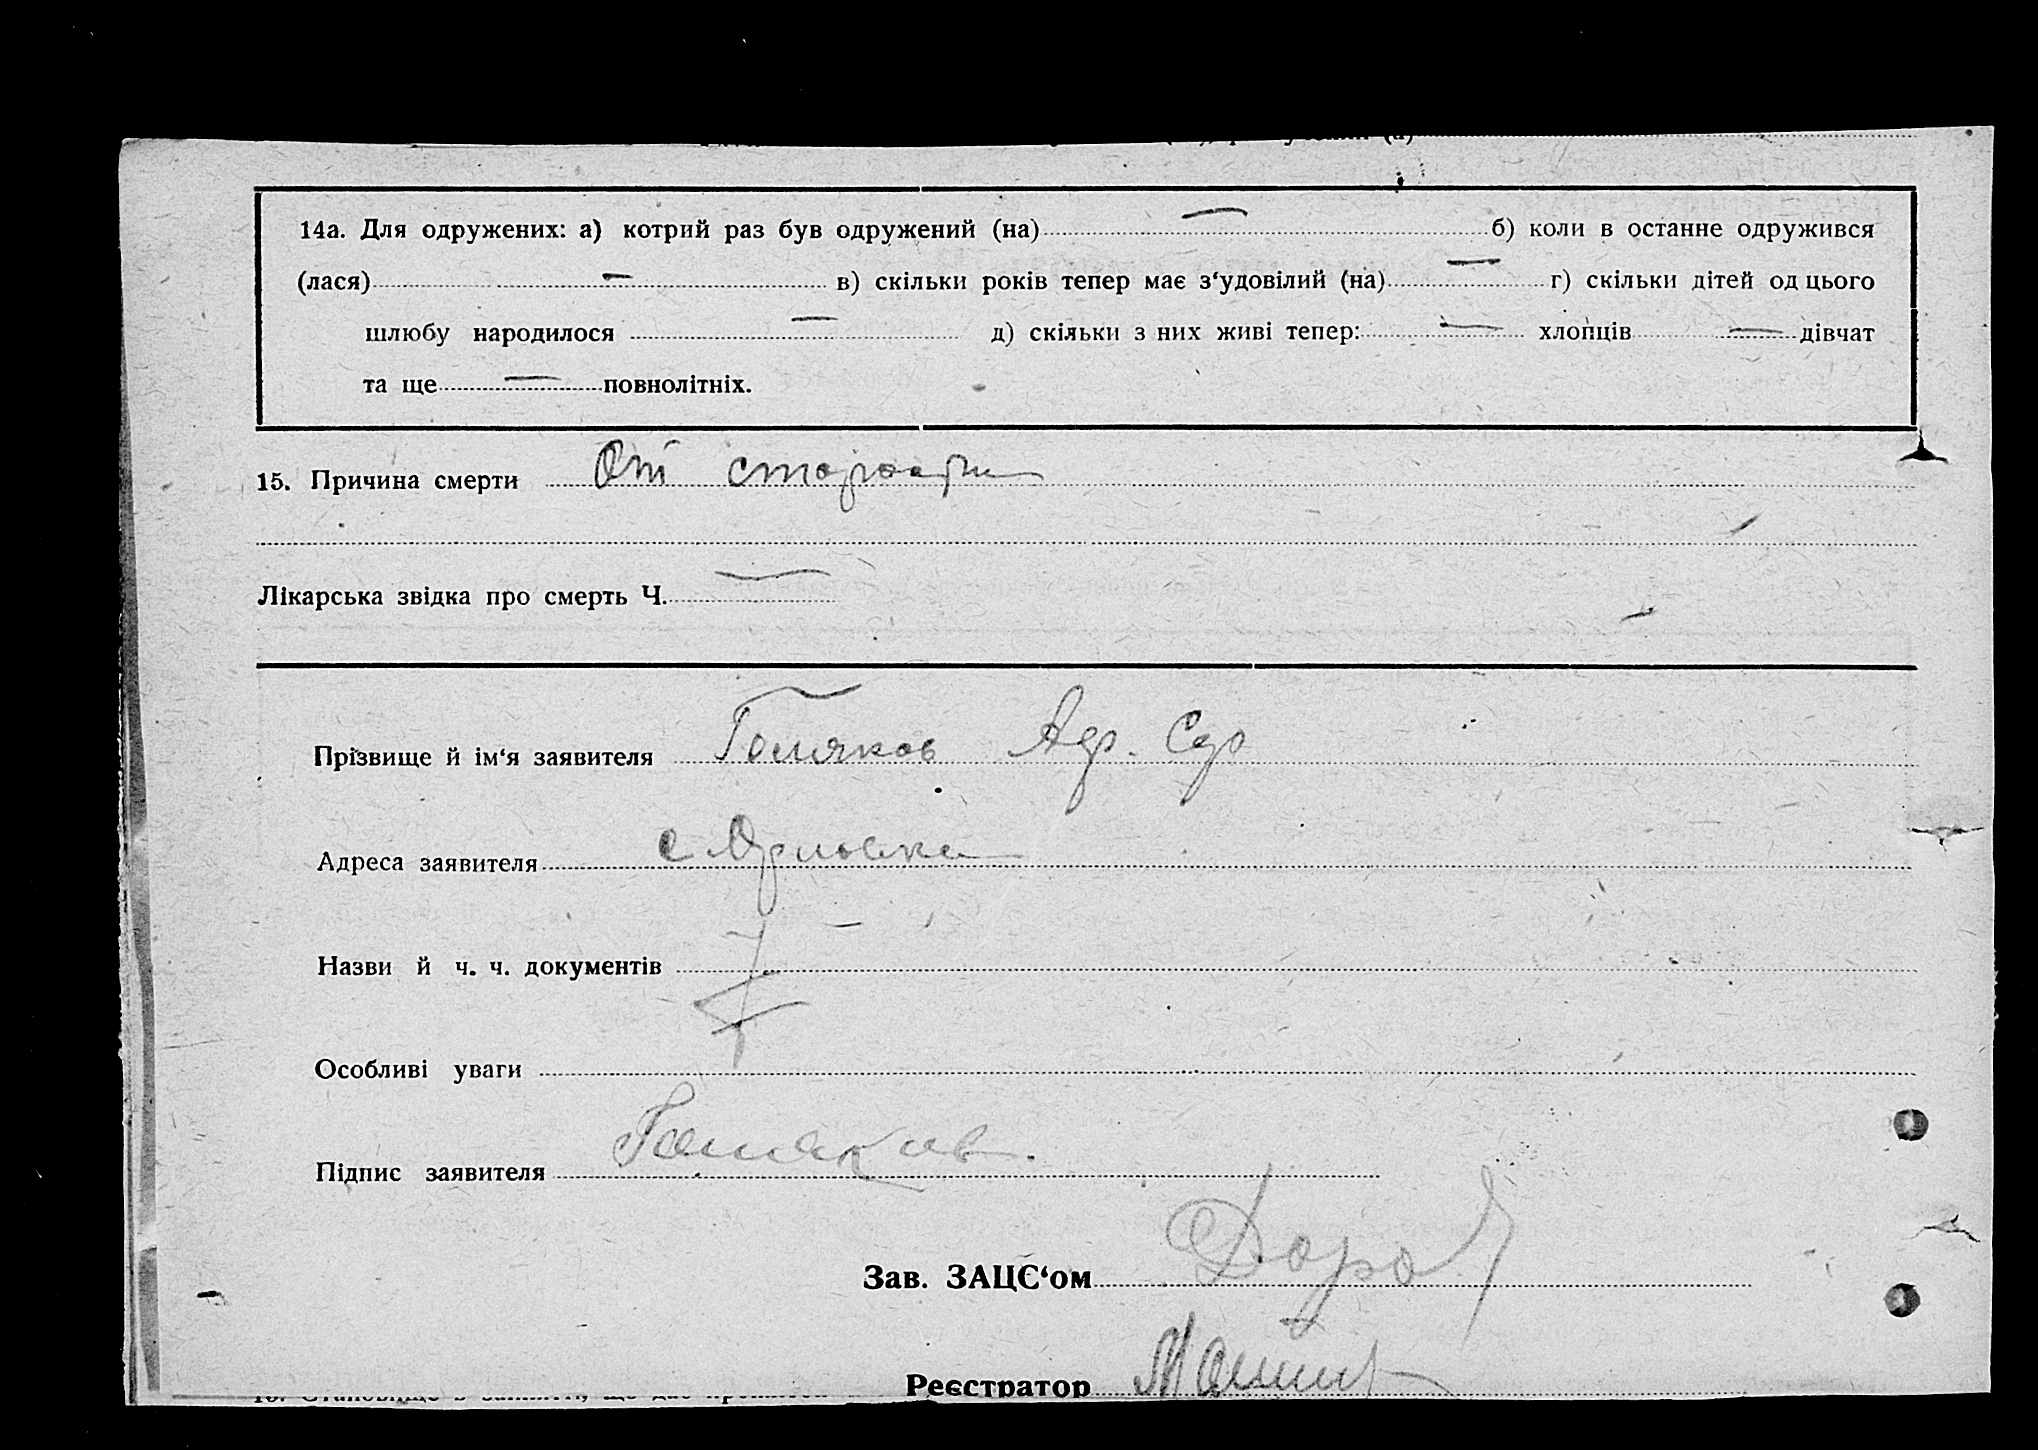 14а. Для одружених: а) котрий раз був одружений (на) — б) коли в останне одружився
(лася) — в) скільки років тепер має з‘удовілий (на) — г) скільки дітей од цього
шлюбу народилося — д) скільки з них живі тепер: — хлопців — дівчат
та ще — повнолітніх.
15. Причина смерти От старости
Лікарська звідка про смерть Ч. —
Прізвище й ім‘я заявителя Голяков
Адреса заявителя с Орловка
Назви й ч. ч. документів
Особливі уваги
Підпис заявителя Голяков.
Зав. ЗАЦЄ‘ом
Реєстратор